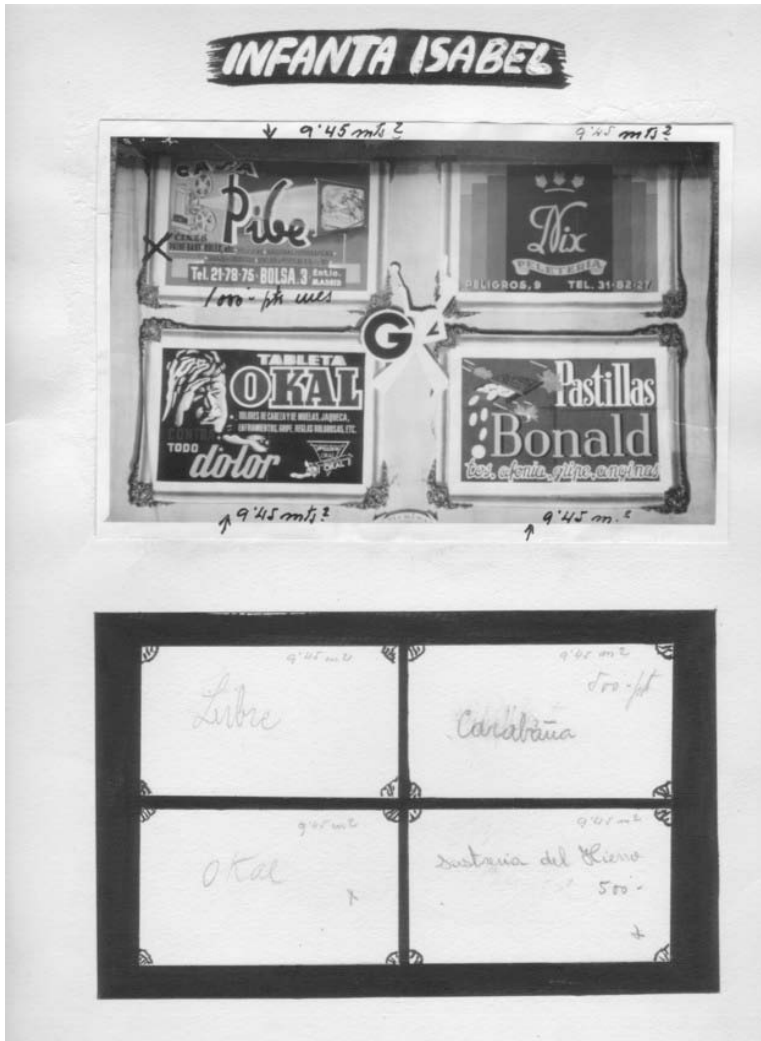 INFANTA ISABEL
9'45 mts2
9'45 mts2
CASA
Pibe
Tel. 21-78-75 - BOLSA, 3 Entlo. MADRID
1000- pts mes
Nix
PELETERIA
PELIGROS, 9 TEL. 31-82-27
G
TABLETA
OKAL
DOLORES DE CABEZA Y DE MUELAS, JAQUECA,
ENFRIAMIENTOS, GRIPE, REGLAS DOLOROSAS, ETC.
CONTRA
TODO
dolor
OKAL
Pastillas
Bonald
tos, afonia, gripe, anginas
9'45 mts2
9'45 m.2
9'45 m2
Libre
9'45 m2
500-pts
Carabaña
9'45 m2
OKal
9'45 m2
Sastreria del Hierro
500-